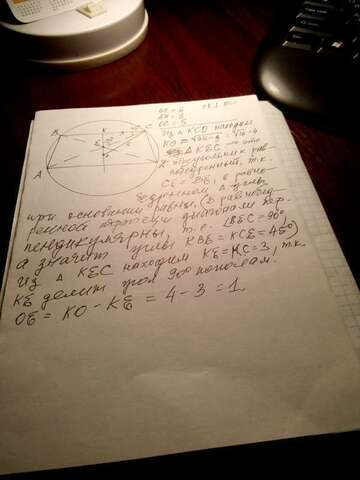 B
K
C
A
из △ KCO находим
KO = √25-9 = √16 = 4
△ KEC - это
треугольник рав-
нобедренный, т.к.
CE = BE, в равно-
бедренном △ углы
при основании равны, (в равнобед-
ренной трапеции диагонали пер-
пендикулярны, т.е. ∠BEC = 90°,
а значит углы KBE = KCE = 45°)
Из △ KEC находим KE = KC = 3, т.к.
KE делит угол 90° пополам.
OE = KO - KE = 4 - 3 = 1.